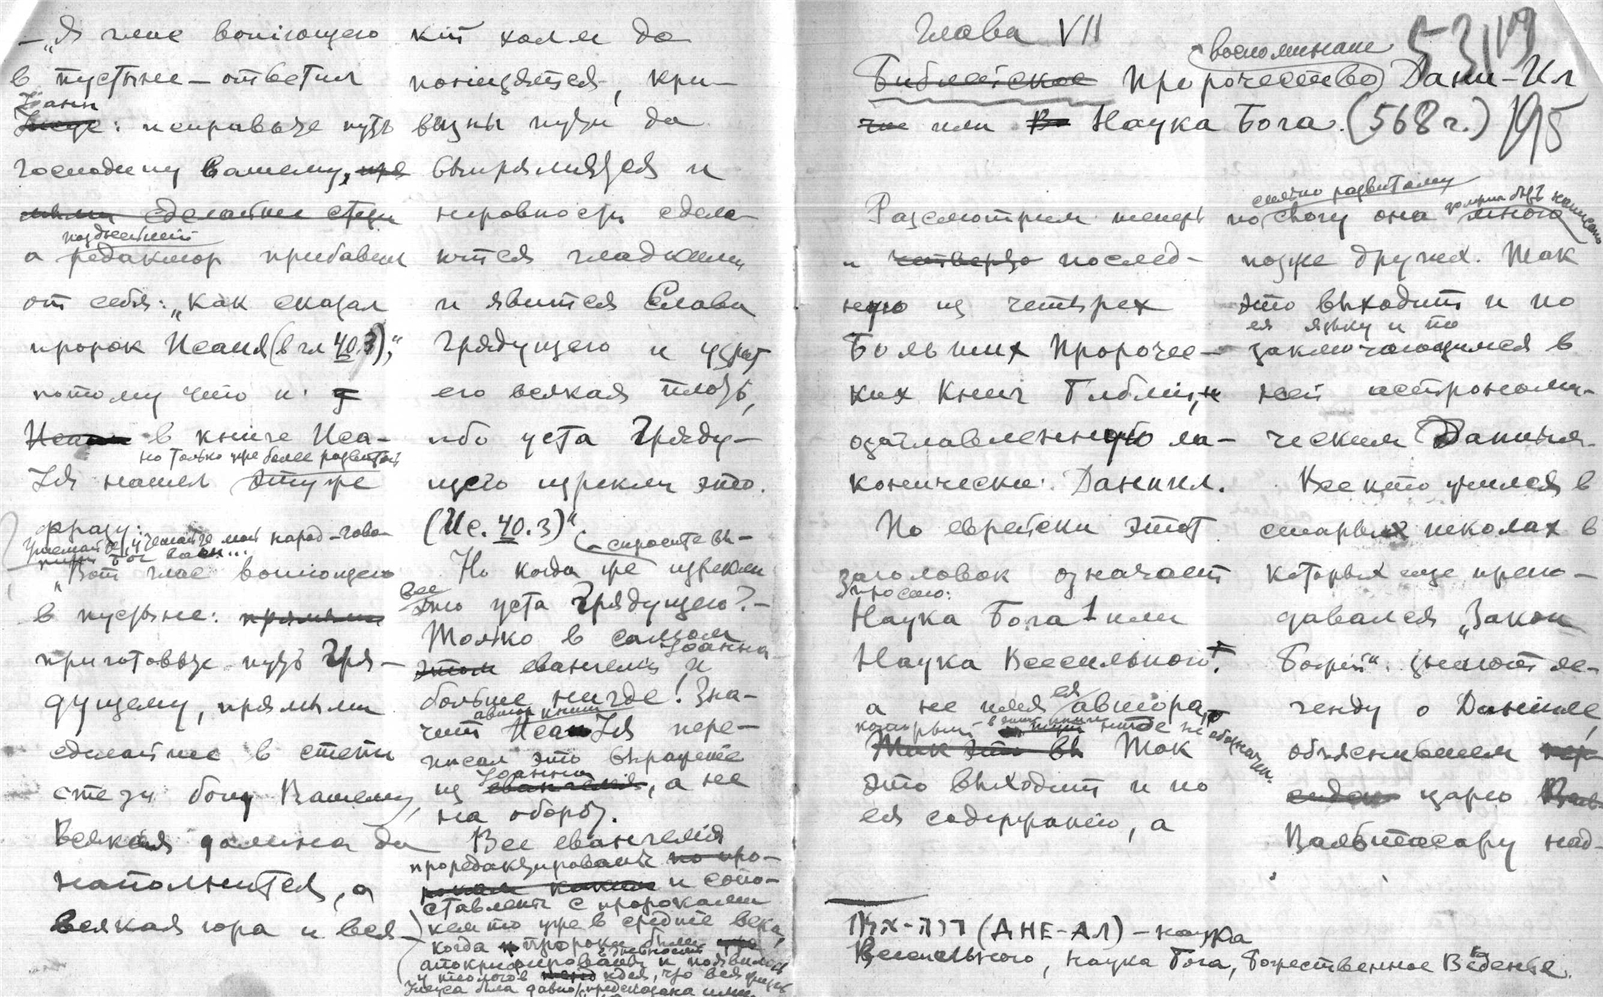 — „Я глас вопіющего
в пустыне — ответил
Іоанн
: исправьте путь
господину Вашему,
сделайте стези
позднейший
а редактор прибавил
от себя: „как сказал
пророк Исаия (в гл 40.3)“,
потому что и
в книге Иса-
но только уже более развитой
Ія нашел эту же
фразу:
мой народ — гово-
бог ваш...
„Вот глас вопіющего
в пустыне:
приготовьте путь Гря-
дущему, прямыми
сделайте в степи
стези богу Вашему,
Всякая долина да
наполнится, а
всякая гора и вся-
кій холм да
понизятся, кри-
визны пути да
выпрямятся и
неровности сдела-
ются гладкими
и явится Слава
Грядущего и узрит
его всякая плоть,
ибо уста Гряду-
щего изрекли это.
(Ис. 40.3)“
спросите вы —
Но когда же изрекли
все
это уста Грядущего? —
Только в самом
Іоанна
этом евангелии и
больше нигде! Зна-
автор книги
чит ИсаІя пере-
писал это выражение
Іоанна
из евангелия, а не
на оборот.
Все евангелия
проредактированы по про-
и сопо-
ставлены с пророками
кем то уже в средние века,
когда пророки были
апокрифированы и появилась
у теологов идея, что вся
Іисуса была давно предсказана ими
Глава VII
воспоминание
Библейское Пророчество Дани-Ил
или Наука Бога. (568 г.)
53 119
195
Разсмотрим теперь
и четвертую послед-
нюю из четырех
Больших Пророчес-
ких Книг Библии,
озаглавленную ла-
конически: Даниил.
По еврейски этот
заголовок означает
просто:
Наука Бога 1 или
Наука Всесильного
а не имя ея автора,
который в этой книге нигде не обозначен.
Так это вы Так
это выходит и по
ея содержанію, а
по слогу она
позже других. Так
это выходит и по
ея языку и по
заключающимся в
ней астрономи-
ческим Данным.
Все кто учился в
старых школах в
которых еще препо-
давался „Закон
Божій“ знают ле-
генду о Данииле,
объяснившем
царю
Валтасару над-
(ДНЕ-АЛ) — наука
Всесильного, наука Бога, Божественное Веденье.